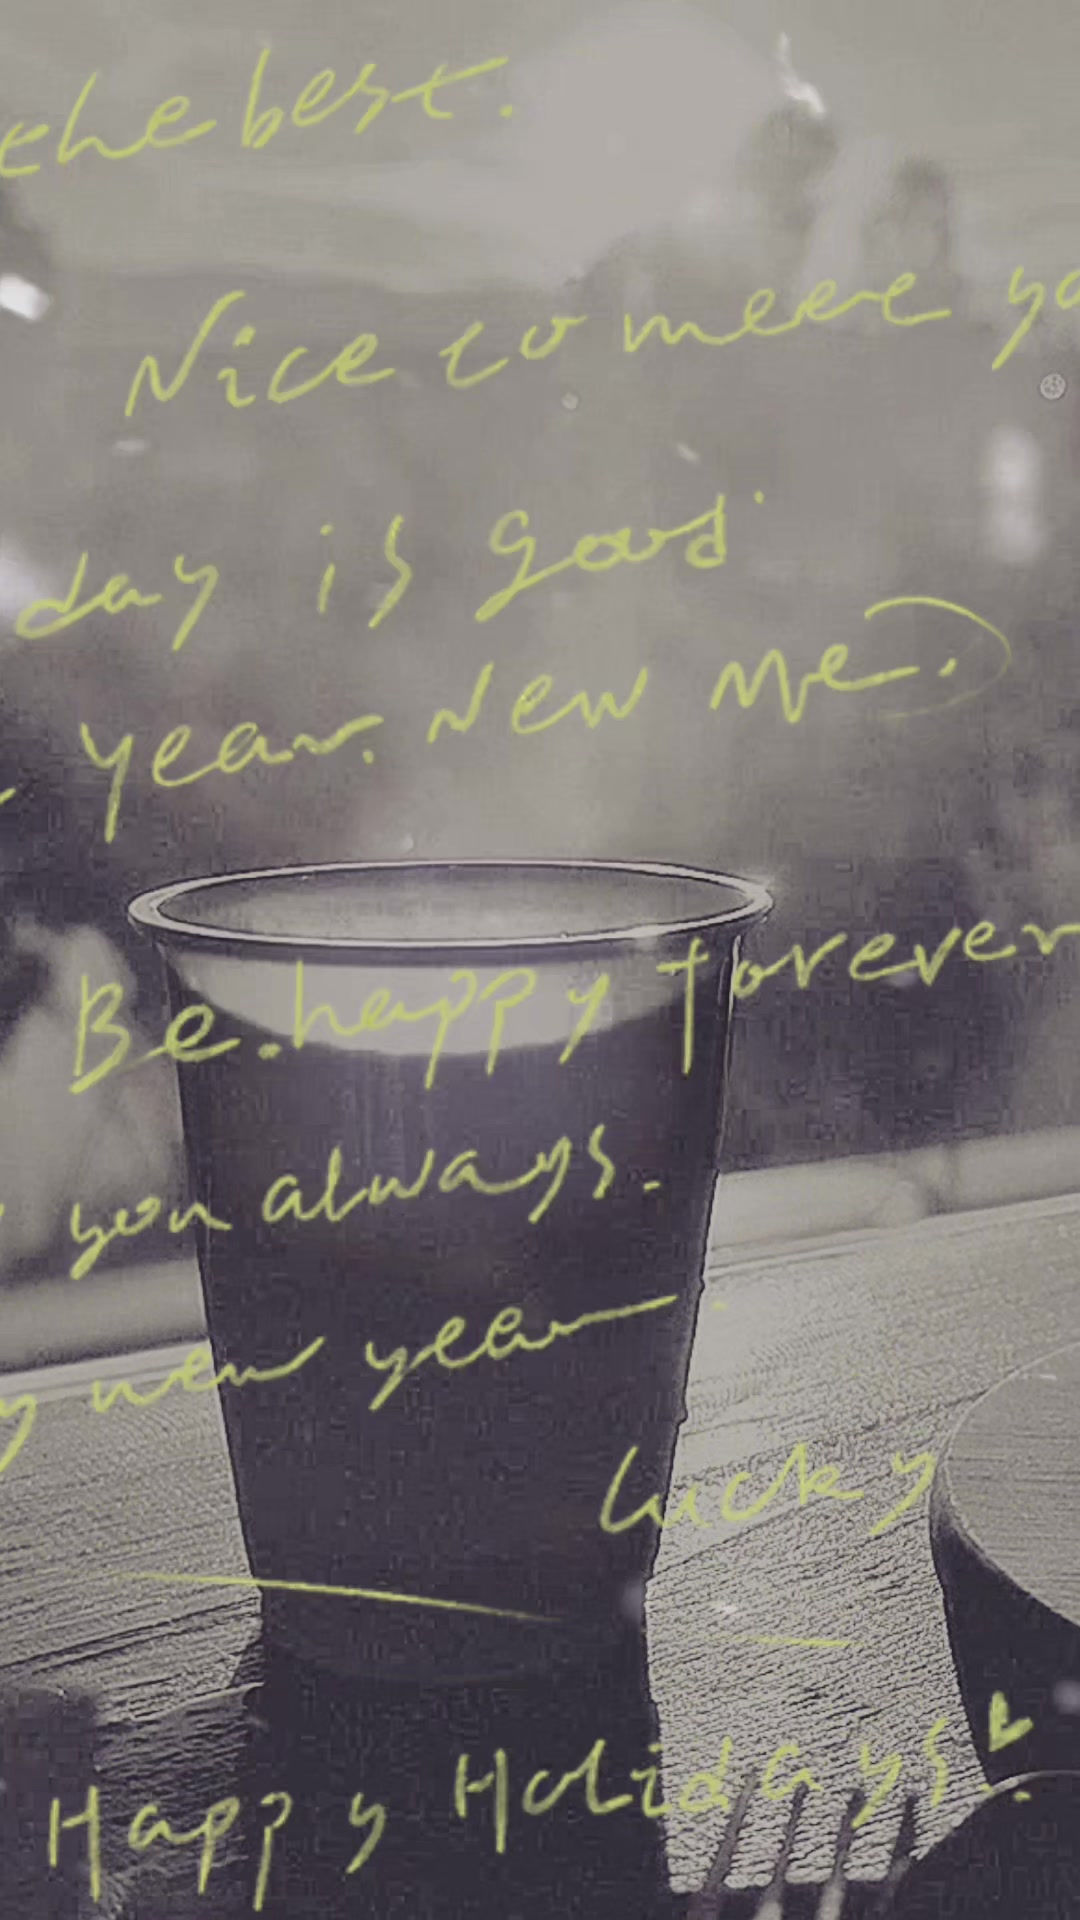 the best.
Nice to meet yo
day is good.
year. New Me.
Be. happy forever
you always.
y new year
lucky
Happy Holidays!